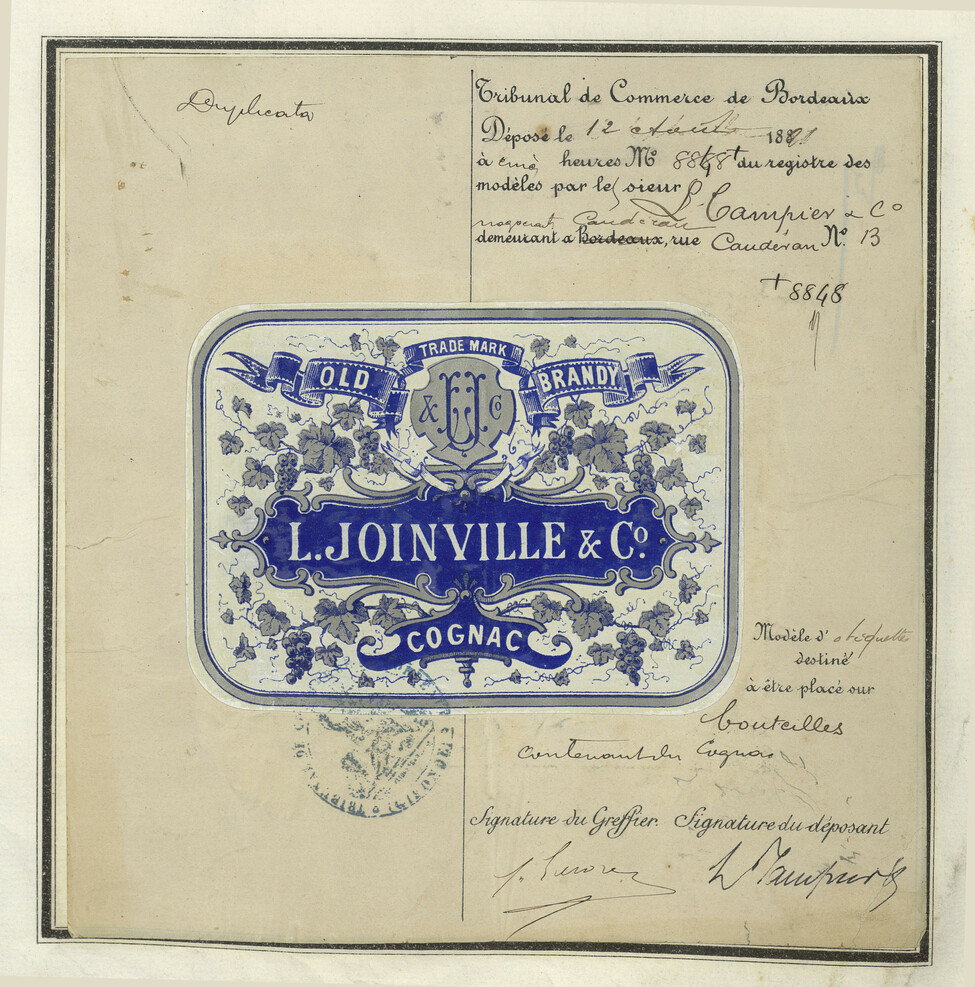 Duplicata
Tribunal de Commerce de Bordeaux
Déposé le 12 188
à cinq heures No 8848 + du registre des
modèles par le sieur L. Tampier & Co
Caudéran
demeurant a Bordeaux, rue Caudéran No. 13
+ 8848
TRADE MARK
OLD BRANDY
& Co
L. JOINVILLE & Co.
COGNAC
Modèle d'étiquette
destiné
à être placé sur
bouteilles
contenant du Cognac
Signature du Greffier. Signature du déposant